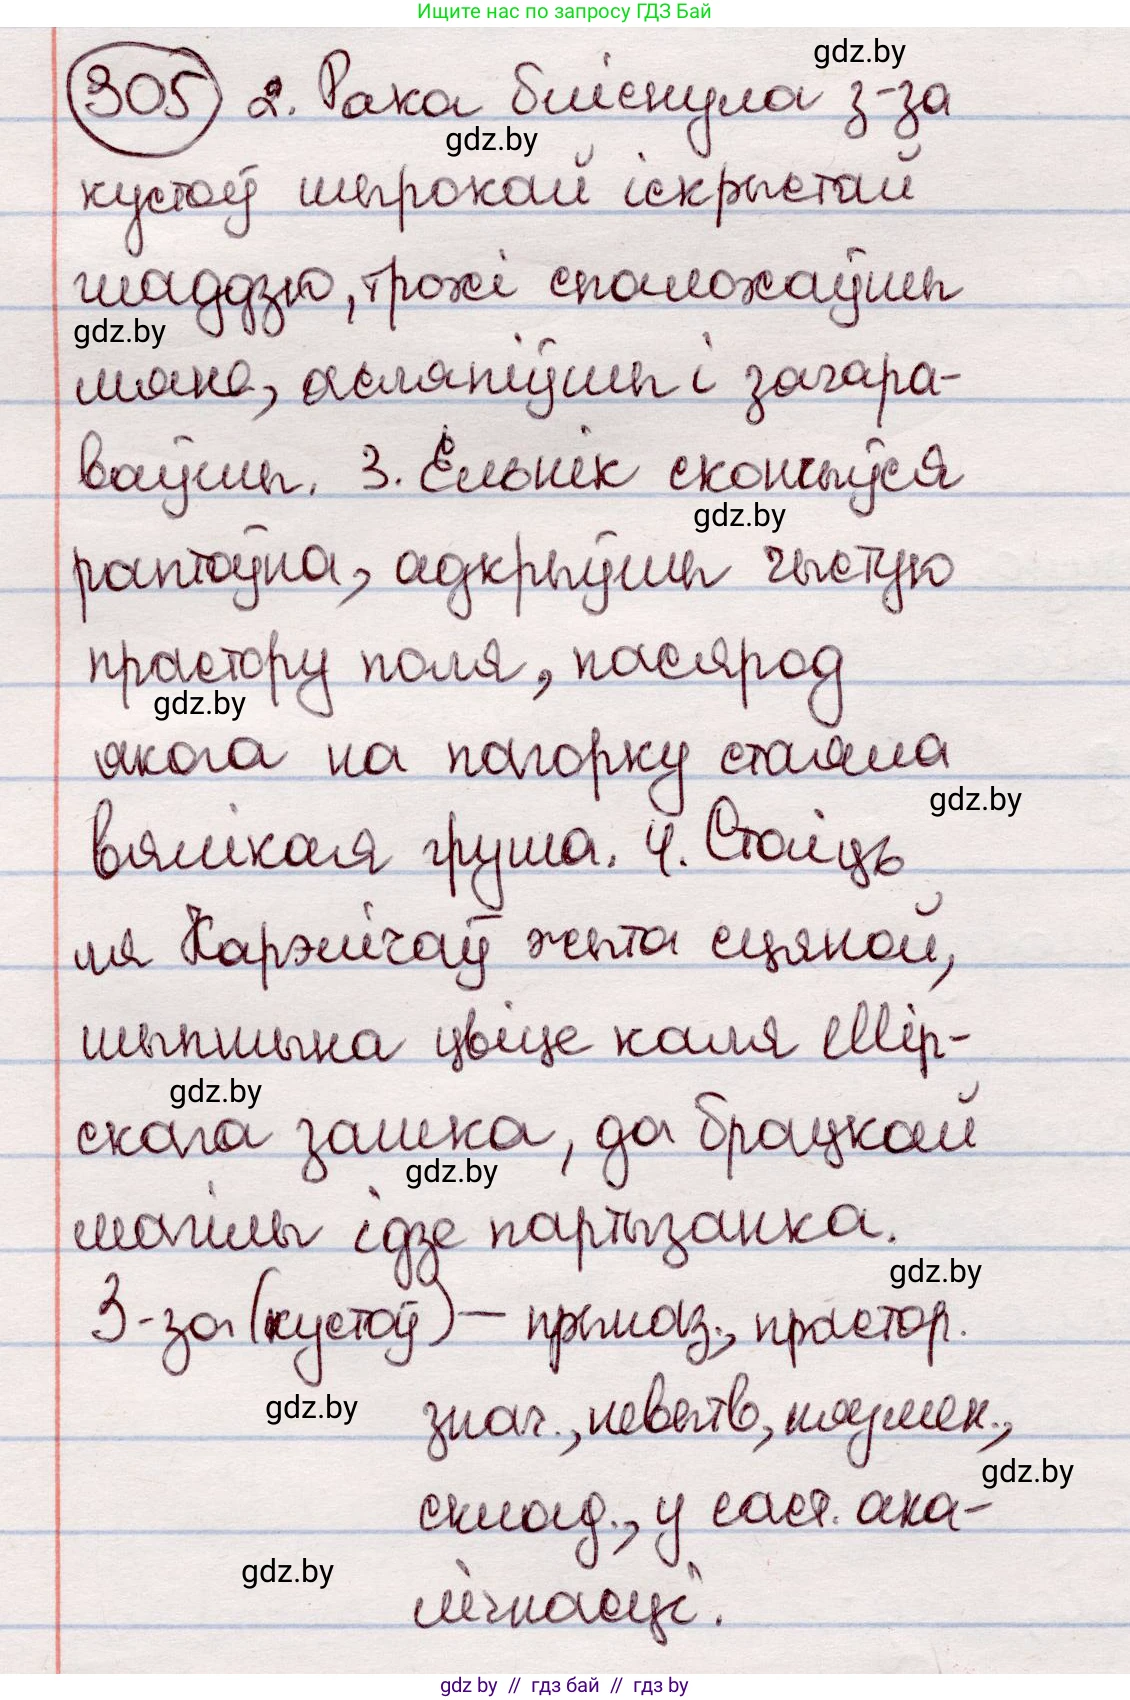 Ищите нас по запросу ГДЗ Бай
gdz.by
305 2. Рака бліснула з-за
gdz.by
кустоў шырокай іскрыстай
гладдзю, трохі спалохаўшы
gdz.by
мяне, асляпіўшы і зачара-
ваўшы. 3. Ельнік скончыўся
gdz.by
раптоўна, адкрыўшы чыстую
прастору поля, пасярод
gdz.by
якога на пагорку стаяла
gdz.by
вялікая груша. 4. Стаіць
ля Карэлічаў жыта сцяной,
шыпшына цвіце каля Мір-
gdz.by
скага замка, да брацкай
gdz.by
магілы ідзе партызанка.
gdz.by
З-за (кустоў) — прыназ., прастор.
gdz.by
знач., невытв., няумен.,
gdz.by
склад., у саст. ака-
gdz.by
лічнасці.
gdz.by // гдз бай // gdz.by